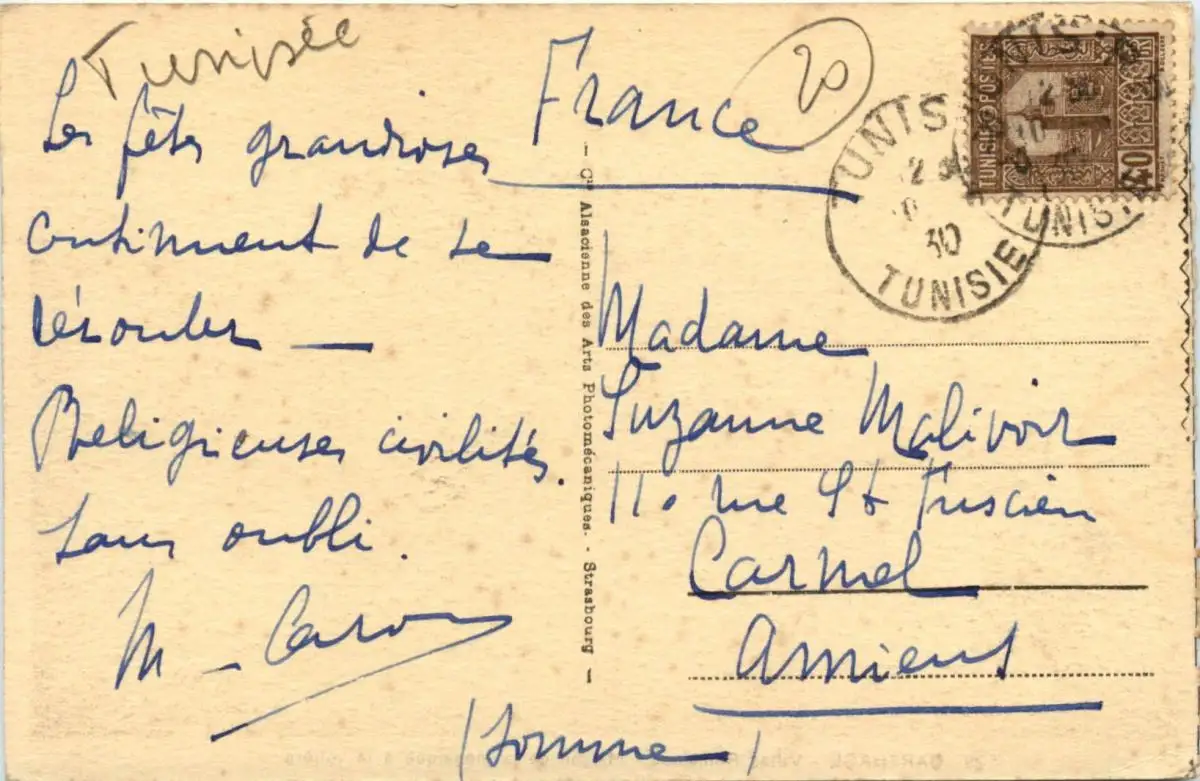 Tunisie
Les fêtes grandioses
continuent de se
dérouler —
Religieuses civilités.
Sans oubli.
M - Caron
France
20
TUNIS
30
TUNISIE
TUNISIE POSTES
40
TUNIS
TUNISIE
- Cie Alsacienne des Arts Photomécaniques. - Strasbourg -
Madame
Suzanne Malivoir
110 rue St Fuscien
Carmel
Amiens
(Somme)